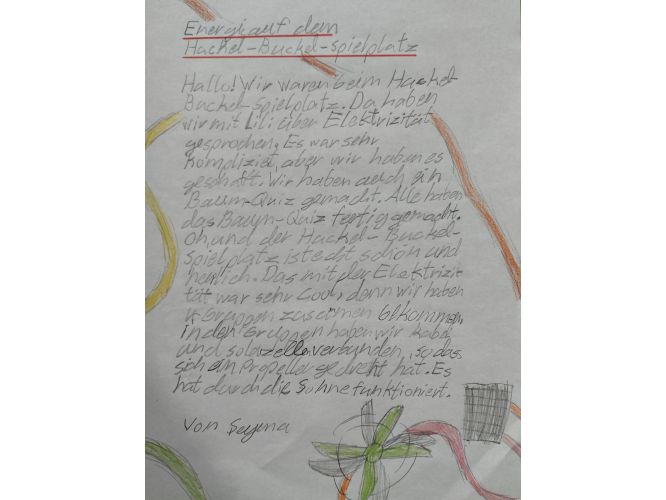 Energie auf dem
Hackel-Buckel-Spielplatz
Hallo! Wir waren beim Hackel-
Buckel-spielplatz. Da haben
wir mit Lili über Elektrizität
gesprochen. Es war sehr
kompliziet, aber wir haben es
geschaft. Wir haben auch ein
Baum-Quiz gemacht. Alle haben
das Baum-Quiz fertig gemacht.
Oh, und der Hackel-Buckel-
spielplatz ist echt schön und
herrlich. Das mit der Elektrizi-
tät war sehr cool, denn wir haben
Gruppen zusammen bekommen,
in den Gruppen haben wir Kabel
und solarzelle verbunden, sodass
sich ein Propeller gedreht hat. Es
hat durch die Sonne funktioniert.
Von Seyma